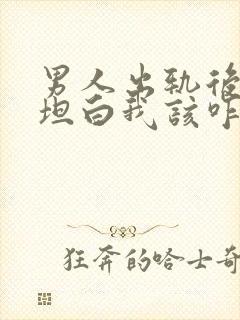 男人出轨後
坦白我該咋
狂奔的哈士奇